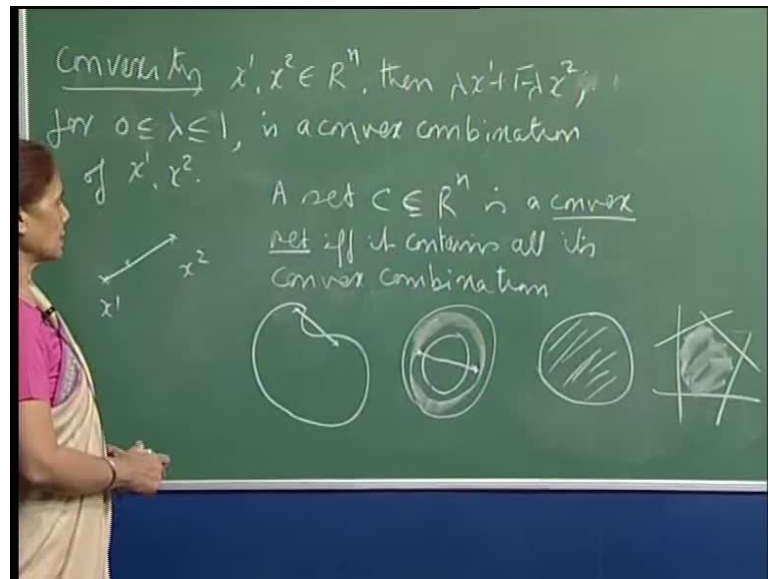 Convexity x¹, x² ∈ Rⁿ, then λx¹ + 1-λ x²,
for 0 ≤ λ ≤ 1, is a convex combination
of x¹, x².
A set C ⊆ Rⁿ is a convex
set iff it contains all its
convex combination
x²
x¹